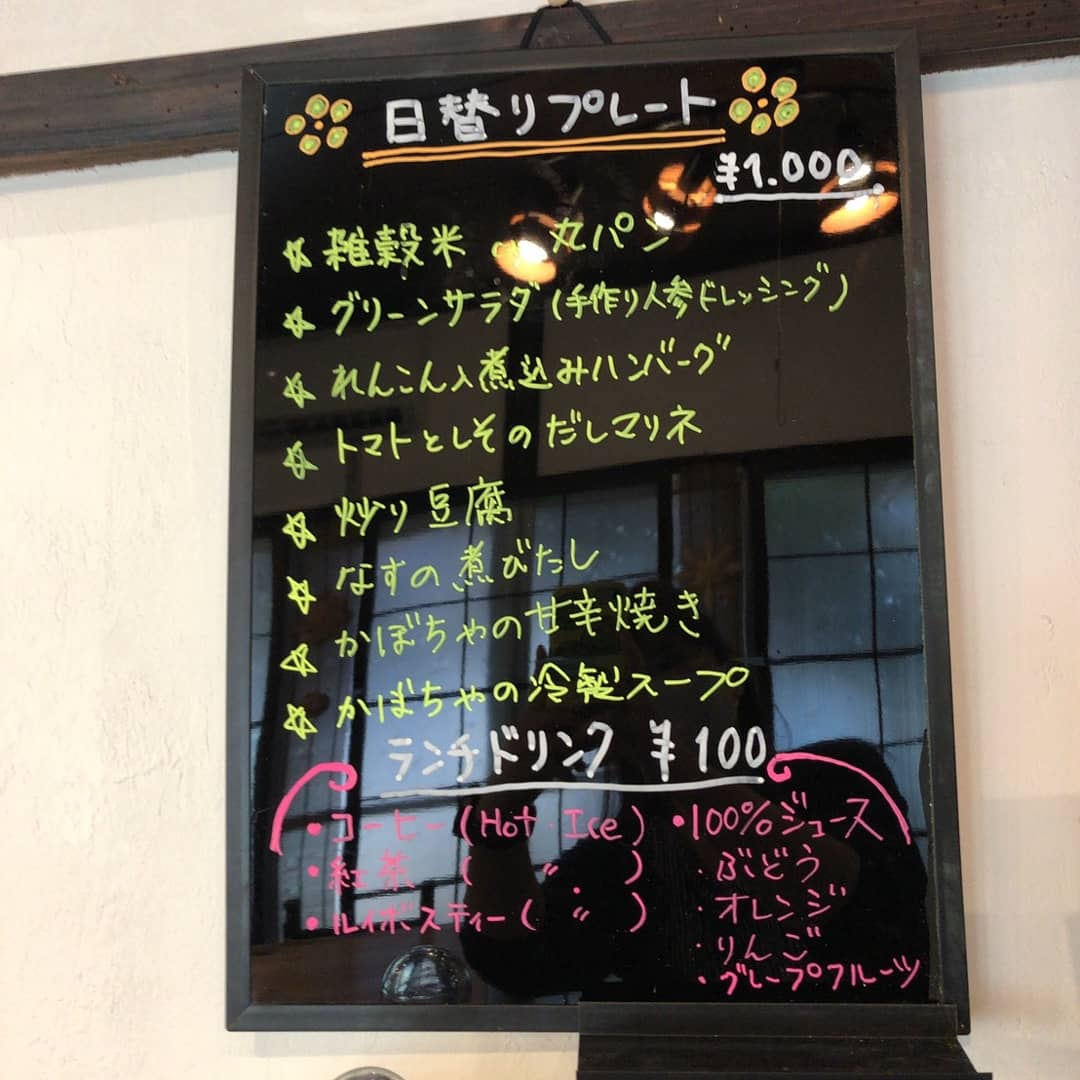 日替りプレート
¥1.000
☆ 雑穀米 丸パン
☆ グリーンサラダ(手作り人参ドレッシング)
☆ れんこん入煮込みハンバーグ
☆ トマトとしそのだしマリネ
☆ 炒り豆腐
☆ なすの煮びたし
☆ かぼちゃの甘辛焼き
☆ かぼちゃの冷製スープ
ランチドリンク ¥100
・コーヒー(Hot・Ice)
・紅茶 ( 〃 )
・ルイボスティー( 〃 )
・100%ジュース
・ぶどう
・オレンジ
・りんご
・グレープフルーツ